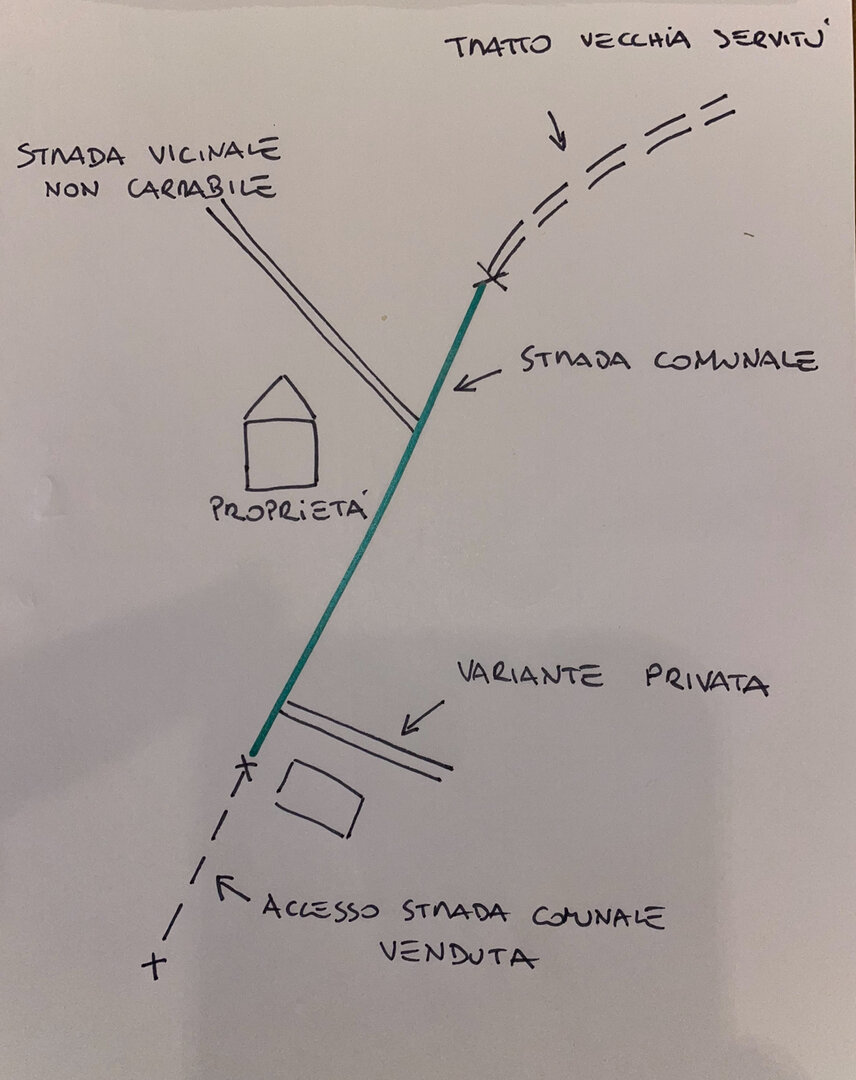 TRATTO VECCHIA SERVITU'
STRADA VICINALE
NON CARRABILE
STRADA COMUNALE
PROPRIETA'
VARIANTE PRIVATA
ACCESSO STRADA COMUNALE
VENDUTA